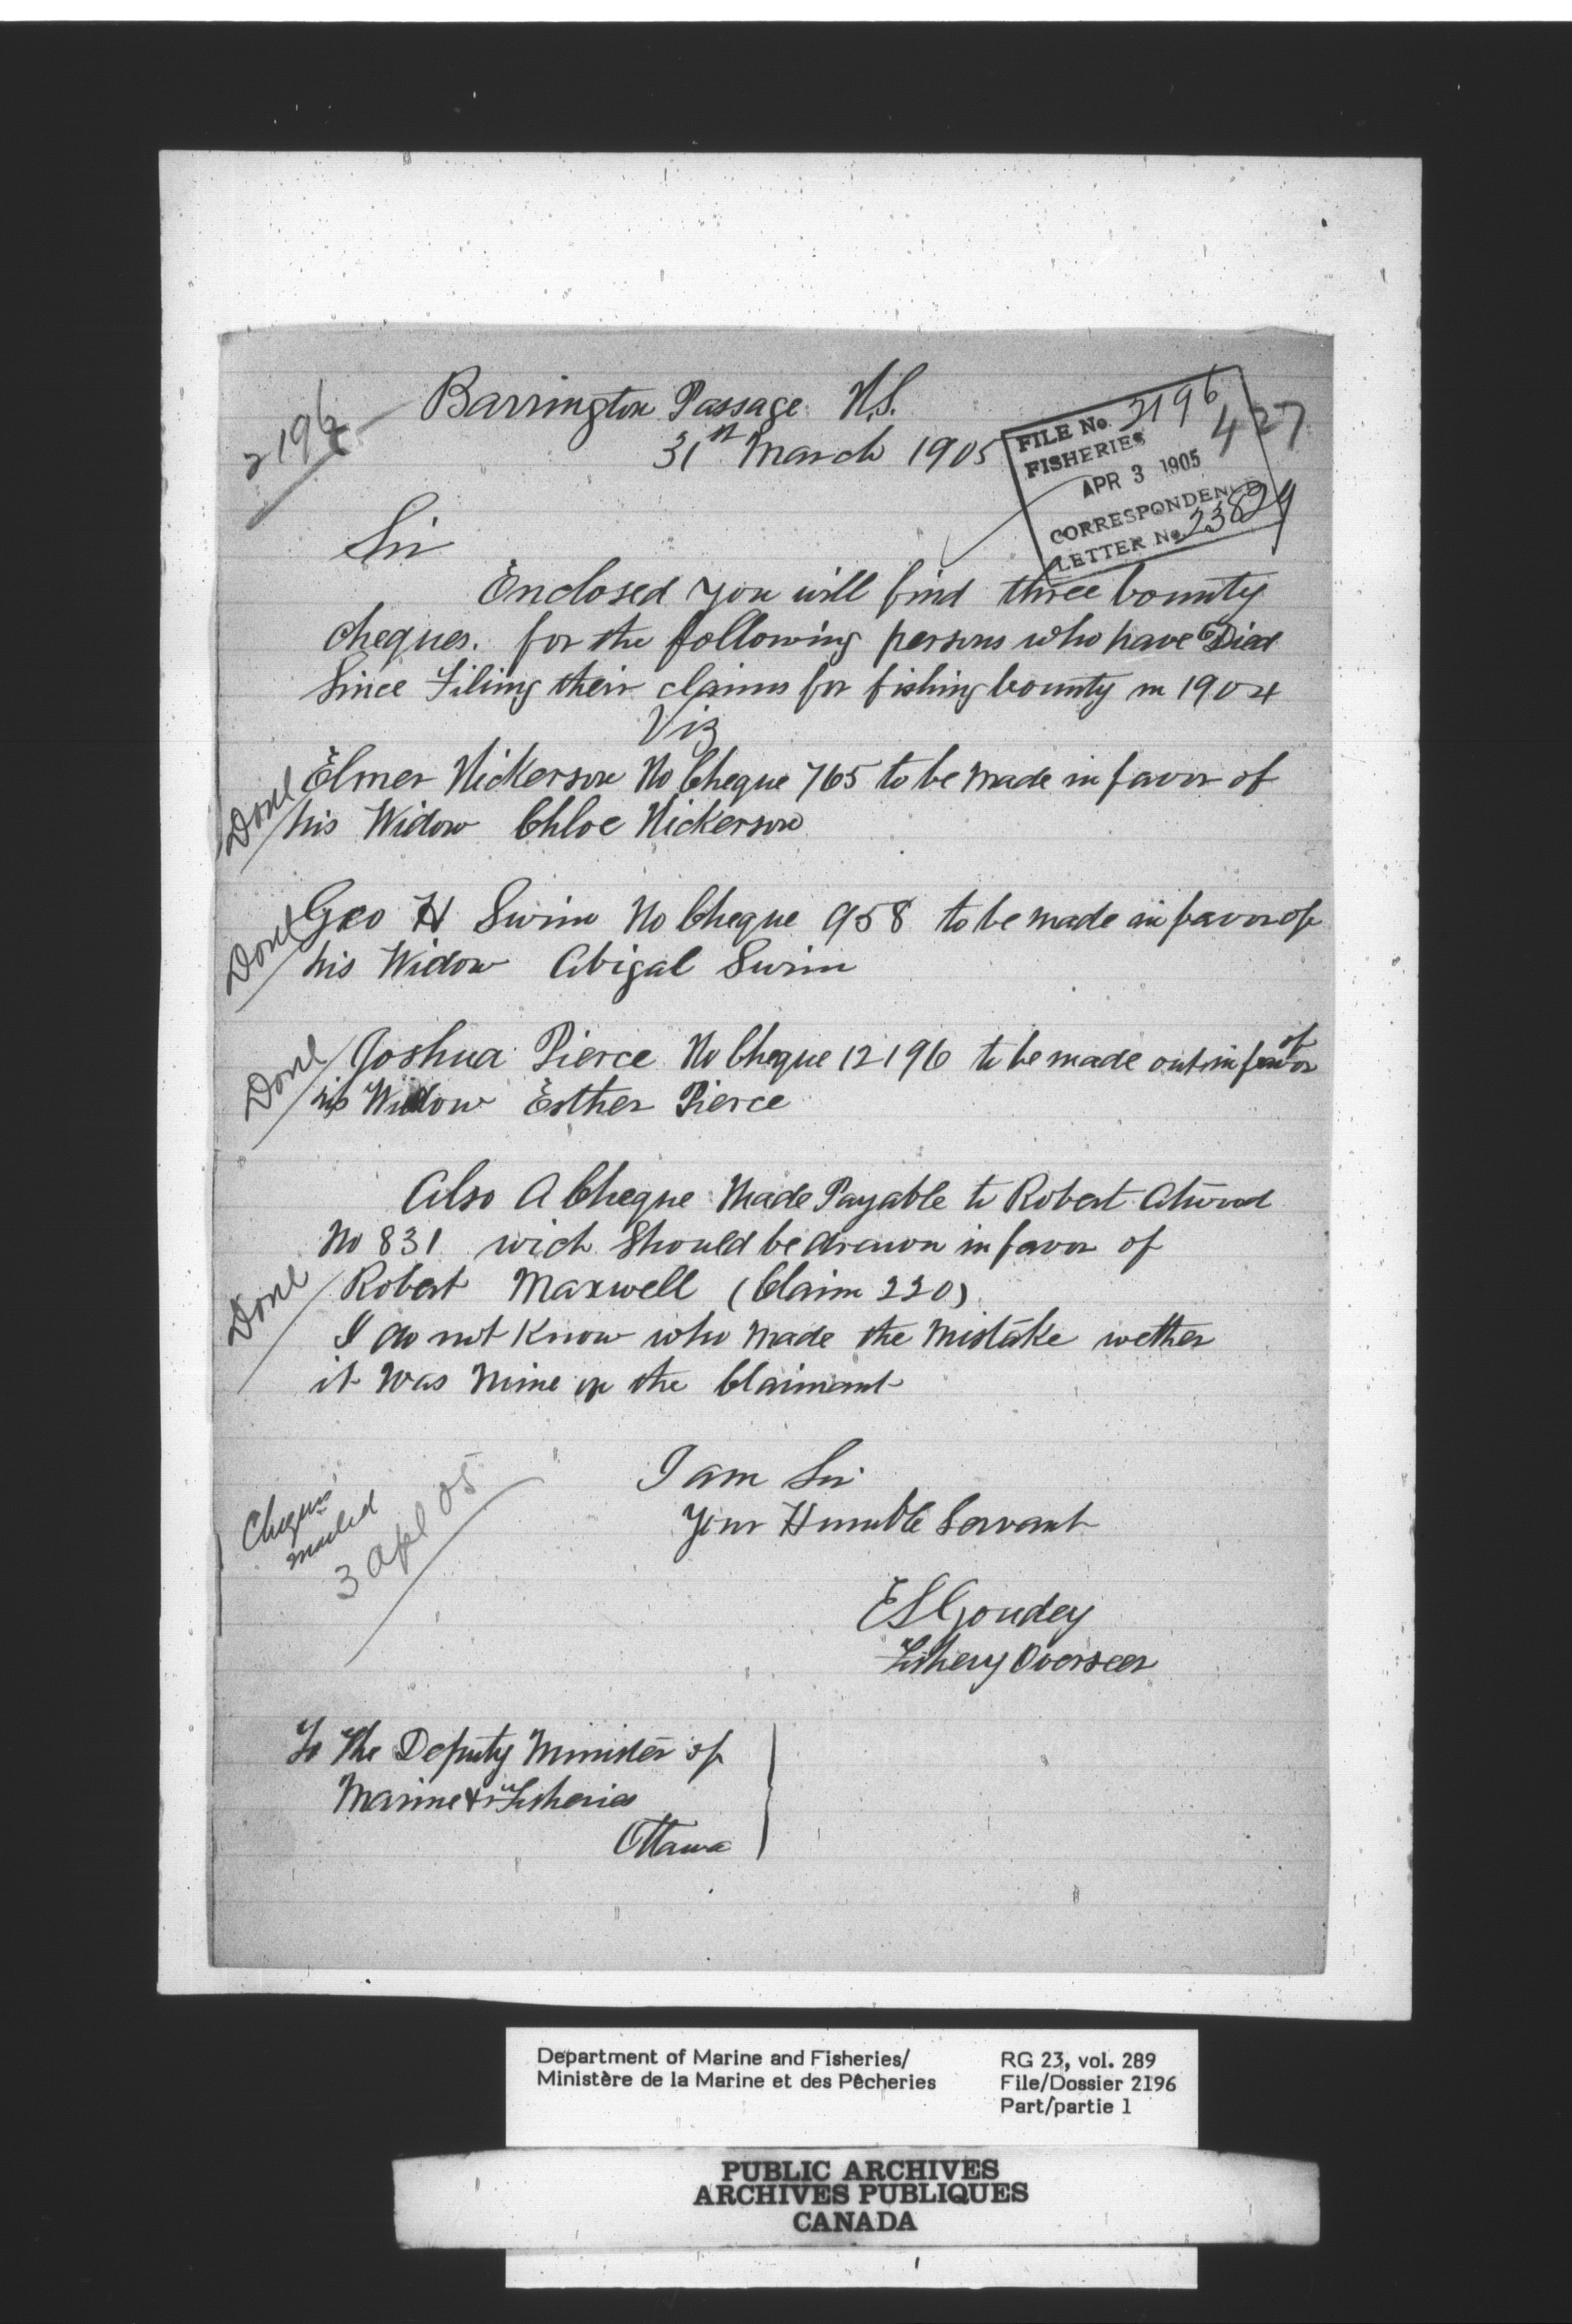 2196
Barrington Passage N.S.
31st March 1905
FILE No. 2196
427
FISHERIES
APR 3 1905
CORRESPONDENCE
LETTER No. 23829
Sir
Enclosed you will find three bounty
cheques. for the following persons who have Died
Since Filing their claims for fishing bounty in 1904
Viz
Done
Elmer Nickerson No Cheque 765 to be made in favor of
his Widow Chloe Nickerson
Done
Geo H Swim No Cheque 958 to be made in favor of
his Widow Abigal Swim
Done
Joshua Pierce No Cheque 12196 to be made out in favor of
his Widow Esther Pierce
Also A Cheque Made Payable to Robert Atwood
No 831 wich Should be drawn in favor of
Done
Robert Maxwell (Claim 220)
I do not Know who made the Mistake wether
it was Mine or the Claimant
Cheques
mailed
3 Apl 05
I am Sir
Your Humble Servant
ES Goudey
Fishery Overseer
To The Deputy Minister of
Marine & Fisheries
Ottawa
Department of Marine and Fisheries/
Ministère de la Marine et des Pêcheries
RG 23, vol. 289
File/Dossier 2196
Part/partie 1
PUBLIC ARCHIVES
ARCHIVES PUBLIQUES
CANADA